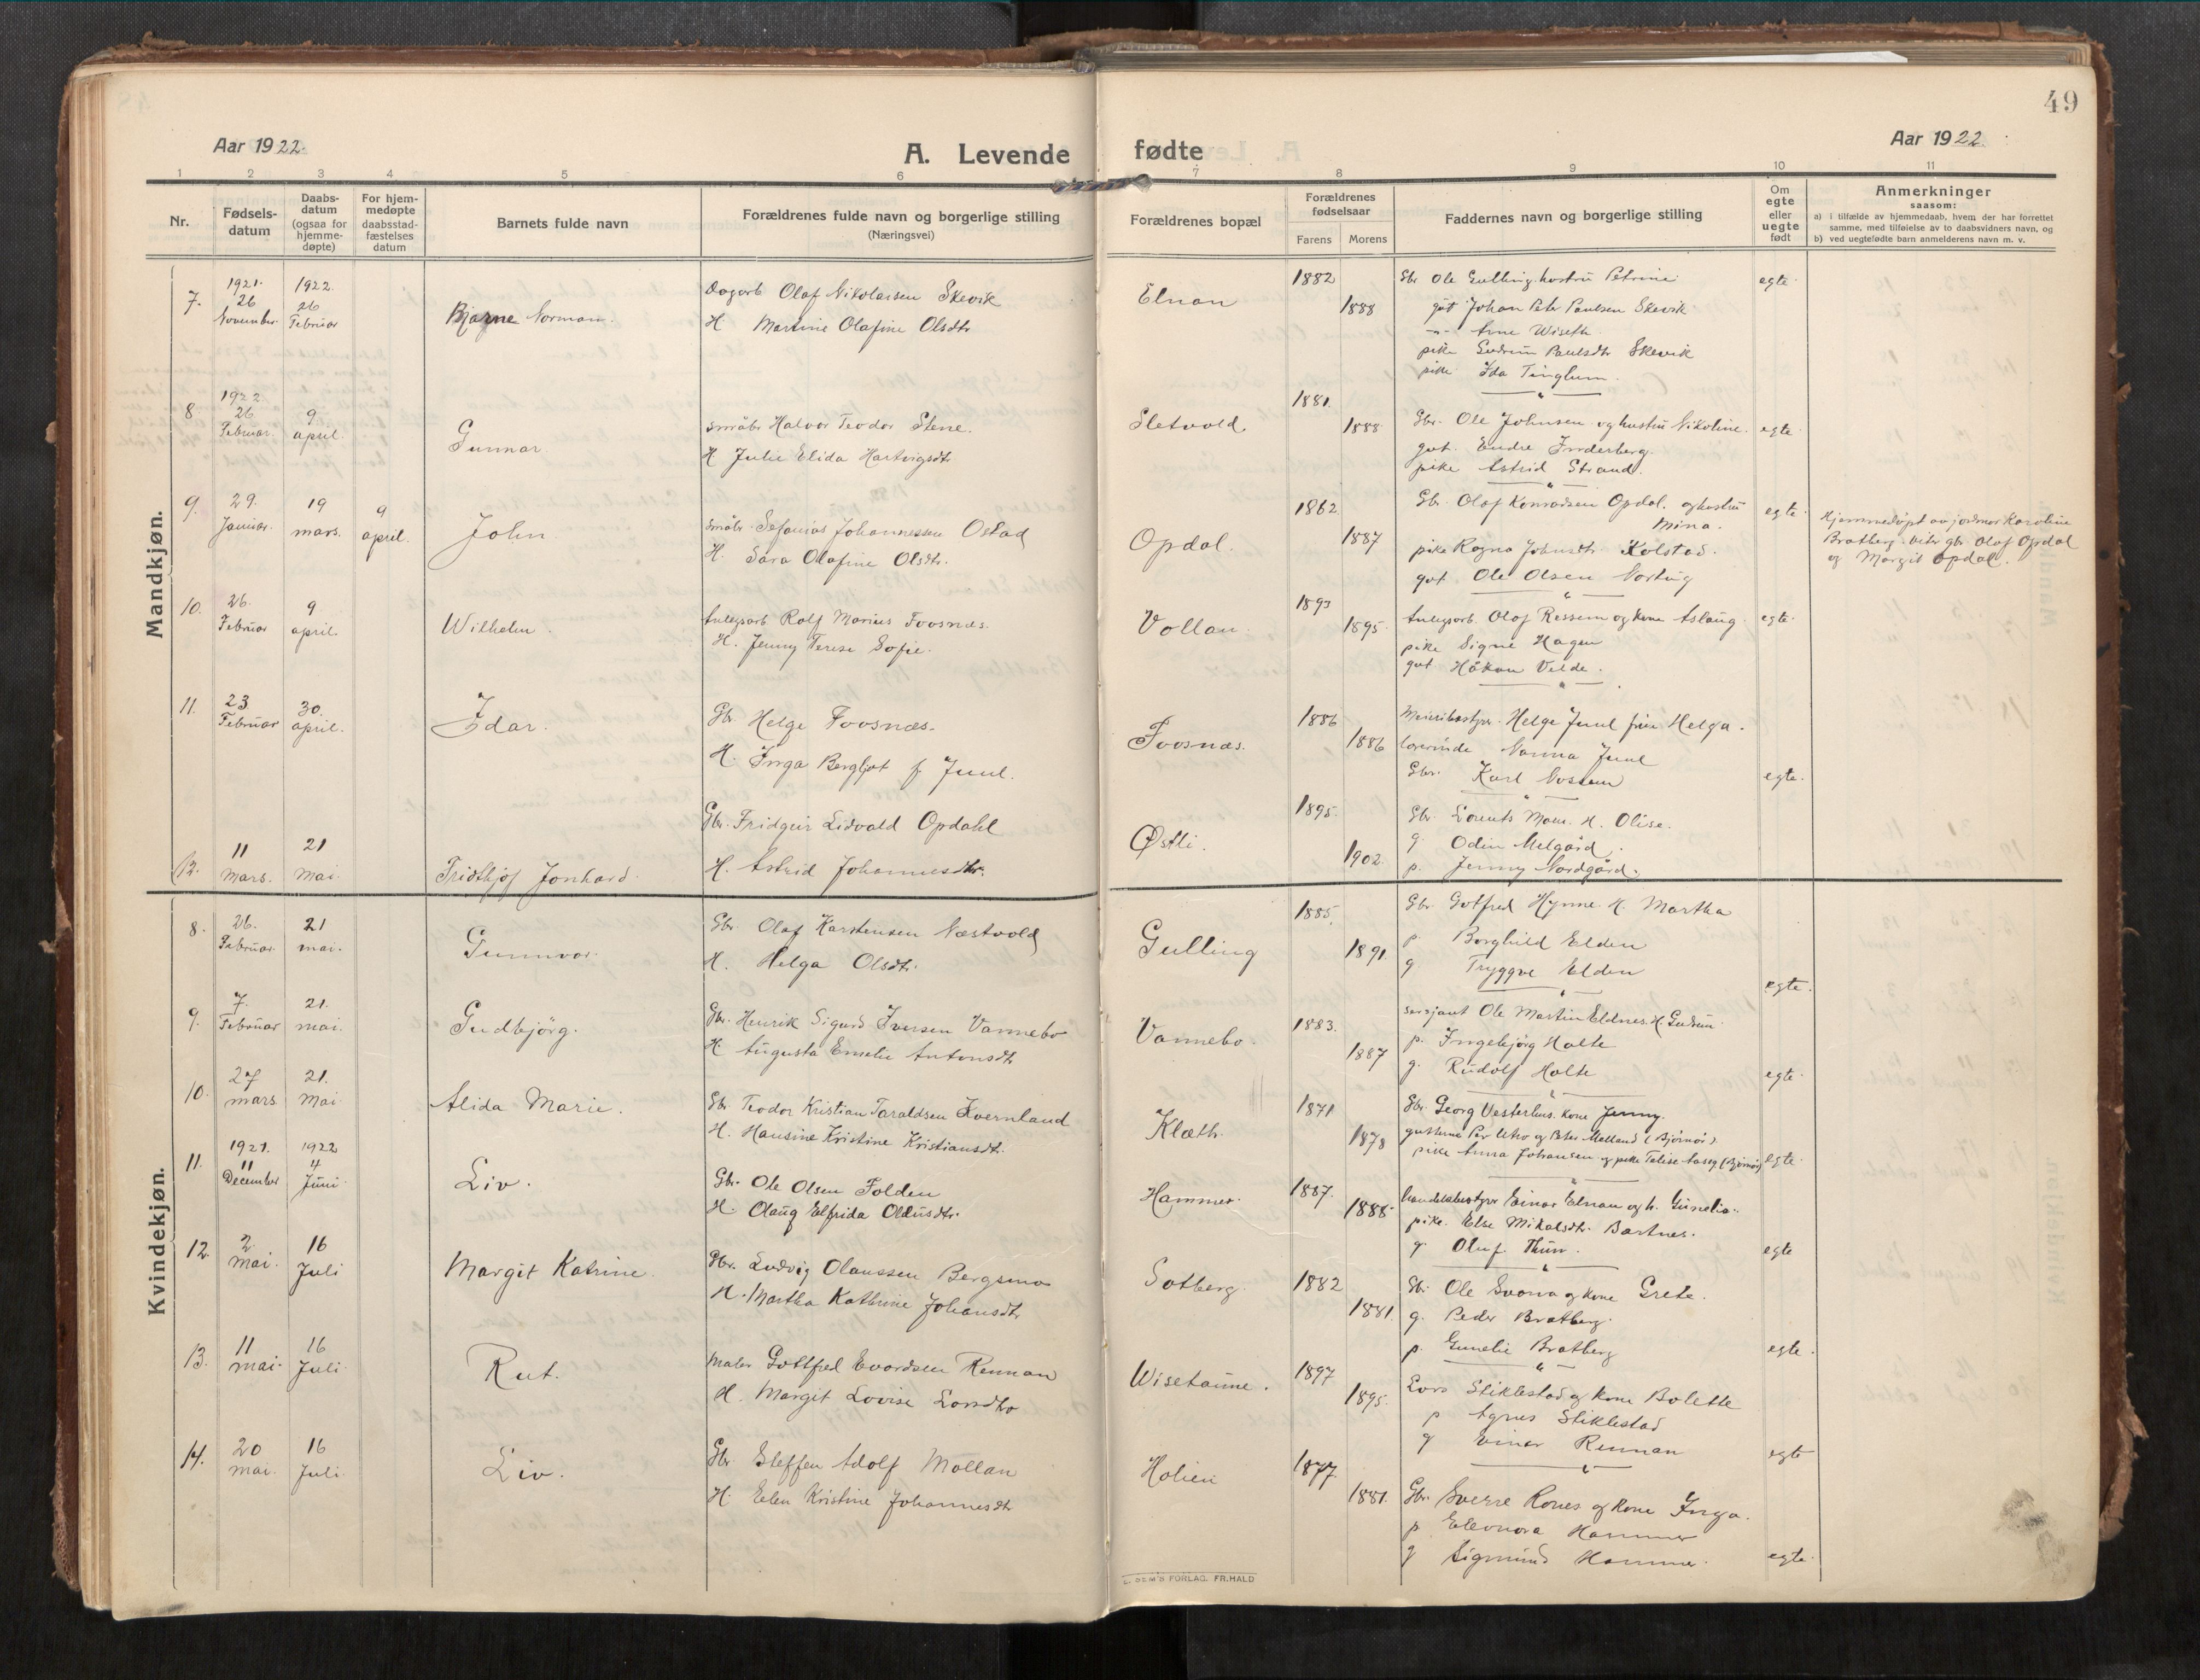 49
Aar 1922.
A. Levende
fødte
Aar 1922.
1 2 3 4 5 6 7 8 9 10 11
Nr.
Fødsels-
datum
Daabs-
datum
(ogsaa for
hjemme-
døpte)
For hjem-
medøpte
daabsstad-
fæstelses
datum
Barnets fulde navn
Forældrenes fulde navn og borgerlige stilling
(Næringsvei)
Forældrenes bopæl
Forældrenes
fødselsaar
Farens Morens
Faddernes navn og borgerlige stilling
Om
egte
eller
uegte
født
Anmerkninger
saasom:
a) i tilfælde av hjemmedaab, hvem der har forrettet
samme, med tilføielse av to daabsvidners navn, og
b) ved uegtefødte barn anmelderens navn m. v.
Mandkjøn.
7.
1921.
26
November
1922.
26
Februar
Bjarne Norman.
Dagarb Olaf Nikolaisen Skevik
H Martine Olafine Olsdtr
Elnan
1882
1888
Gbr Ole Gulling hustru Petrine
gut Johan Peter Paulsen Skevik
-"- Arne Wiseth
pike Gudrun Paulsdtr Skevik
pike Ida Tinglum.
egte
8
1922.
26.
Februar.
9.
april
Gunnar
småbr Halvor Teodor Stene.
H Julie Elida Hartvigsdtr
Sletvold.
1881.
1888
Gbr. Ole Johnsen og hustru Nikoline.
gut. Endre Inderberg.
pike Astrid Strand.
egte
9.
29.
Januar.
19
mars.
9
april.
John
småbr. Sefanias Johannessen Ostad
H. Sara Olafine Olsdtr.
Opdal.
1862
1887
Gbr. Olaf Konradsen Opdal. og hustru
Mina.
pike Ragna Johnsdtr Kolstad.
gut Ole Olsen Nortug
egte
Hjemmedøpt av jordmor Karoline
Bratberg. vitr gbr Olaf Opdal
og Margit Opdal.
10.
26.
Februar
9
april.
Wilhelm.
Anlegsarb Rolf Marius Foosnæs.
H. Jenny Terese Sofie.
Vollan
1893
1895.
Anlegsarb. Olaf Ressem og kone Aslaug.
pike Signe Hagen
gut Håkon Velde.
egte
11.
23.
Februar
30.
april.
Idar.
Gbr. Helge Foosnæs.
H. Inga Bergljot f. Juul.
Foosnæs.
1886
1886
Meieribestyr. Helge Juul frue Helga.
lærerinde Nanna Juul
Gbr. Karl Vossum
egte.
12.
11
Mars.
21
Mai
Fridthjof Jonhard
Gbr. Fridgeir Lidvald Opdahl
H. Astrid Johannesdtr.
Østli.
1895.
1902.
Gbr. Lorents Moen. H. Olise.
g. Odin Melgård.
p. Jenny Nordgård.
Kvindekjøn.
8.
26.
Februar.
21
mai.
Gunnvor
Gbr. Olaf Karstensen Næstvold
H. Helga Olsdtr.
Gulling
1885.
1891
Gbr. Gotfred Hynne H. Martha
p. Borghild Elden
g Tryggve Elden
egte.
9.
7.
Februar
21.
mai.
Gudbjörg.
Gbr. Henrik Sigurd Iversen Vannebo
H Augusta Emelie Antonsdtr
Vannebo.
1883.
1887
sersjant Ole Martin Eldnes. H. Gudrun
p. Ingebjørg Holte
g. Rudolf Holte
egte
10.
27
mars
21.
Mai
Alida Marie.
Gbr. Teodor Kristian Taraldsen Kvernland
H. Hansine Kristine Kristiansdtr.
Klæth.
1871
1878
Gbr. Georg Vesterhus. kone Jenny.
gutterne Per Utvo og Peter Melland (Bjørnør)
pike Anna Johansen og pike (Bjørnør)
egte
11.
1921.
11
December
1922
4
Juni
Liv.
Gbr. Ole Olsen Folden
H. Olaug Elfrida Oleusdtr.
Hammer.
1887.
1888
handelsbestyrer Einar Elnan og h. Gunelia.
pike. Else Mikalsdtr. Bartnes.
g Oluf Thun.
egte
12.
2
mai.
16
Juli
Margit Katrine
Gbr. Ludvig Olaussen Bergsmo
H. Martha Kathrine Johansdtr
Sotberg.
1882
1881.
Gbr Ole Svorva og kone Grete.
g. Peder Bratberg.
p. Gunelie Bratberg
egte.
13.
11
mai.
16
Juli
Rut.
maler Gottfred Evardsen Rennan
H. Margit Lovise Larsdtr
Wisetaune.
1897
1895.
Lars Stiklestad og kone Bolette
p Agnes Stiklestad
g Einar Rennan
egte
14.
20
mai.
16
Juli
Liv.
Gbr Steffen Adolf Mollan
H. Elen Kristine Johannesdtr
Holien
1877.
1881.
Gbr. Sverre Rones og kone Inga.
p Eleonora Hammer
g Sigmund Hammer.
egte
SEM'S FORLAG. FR.HALD